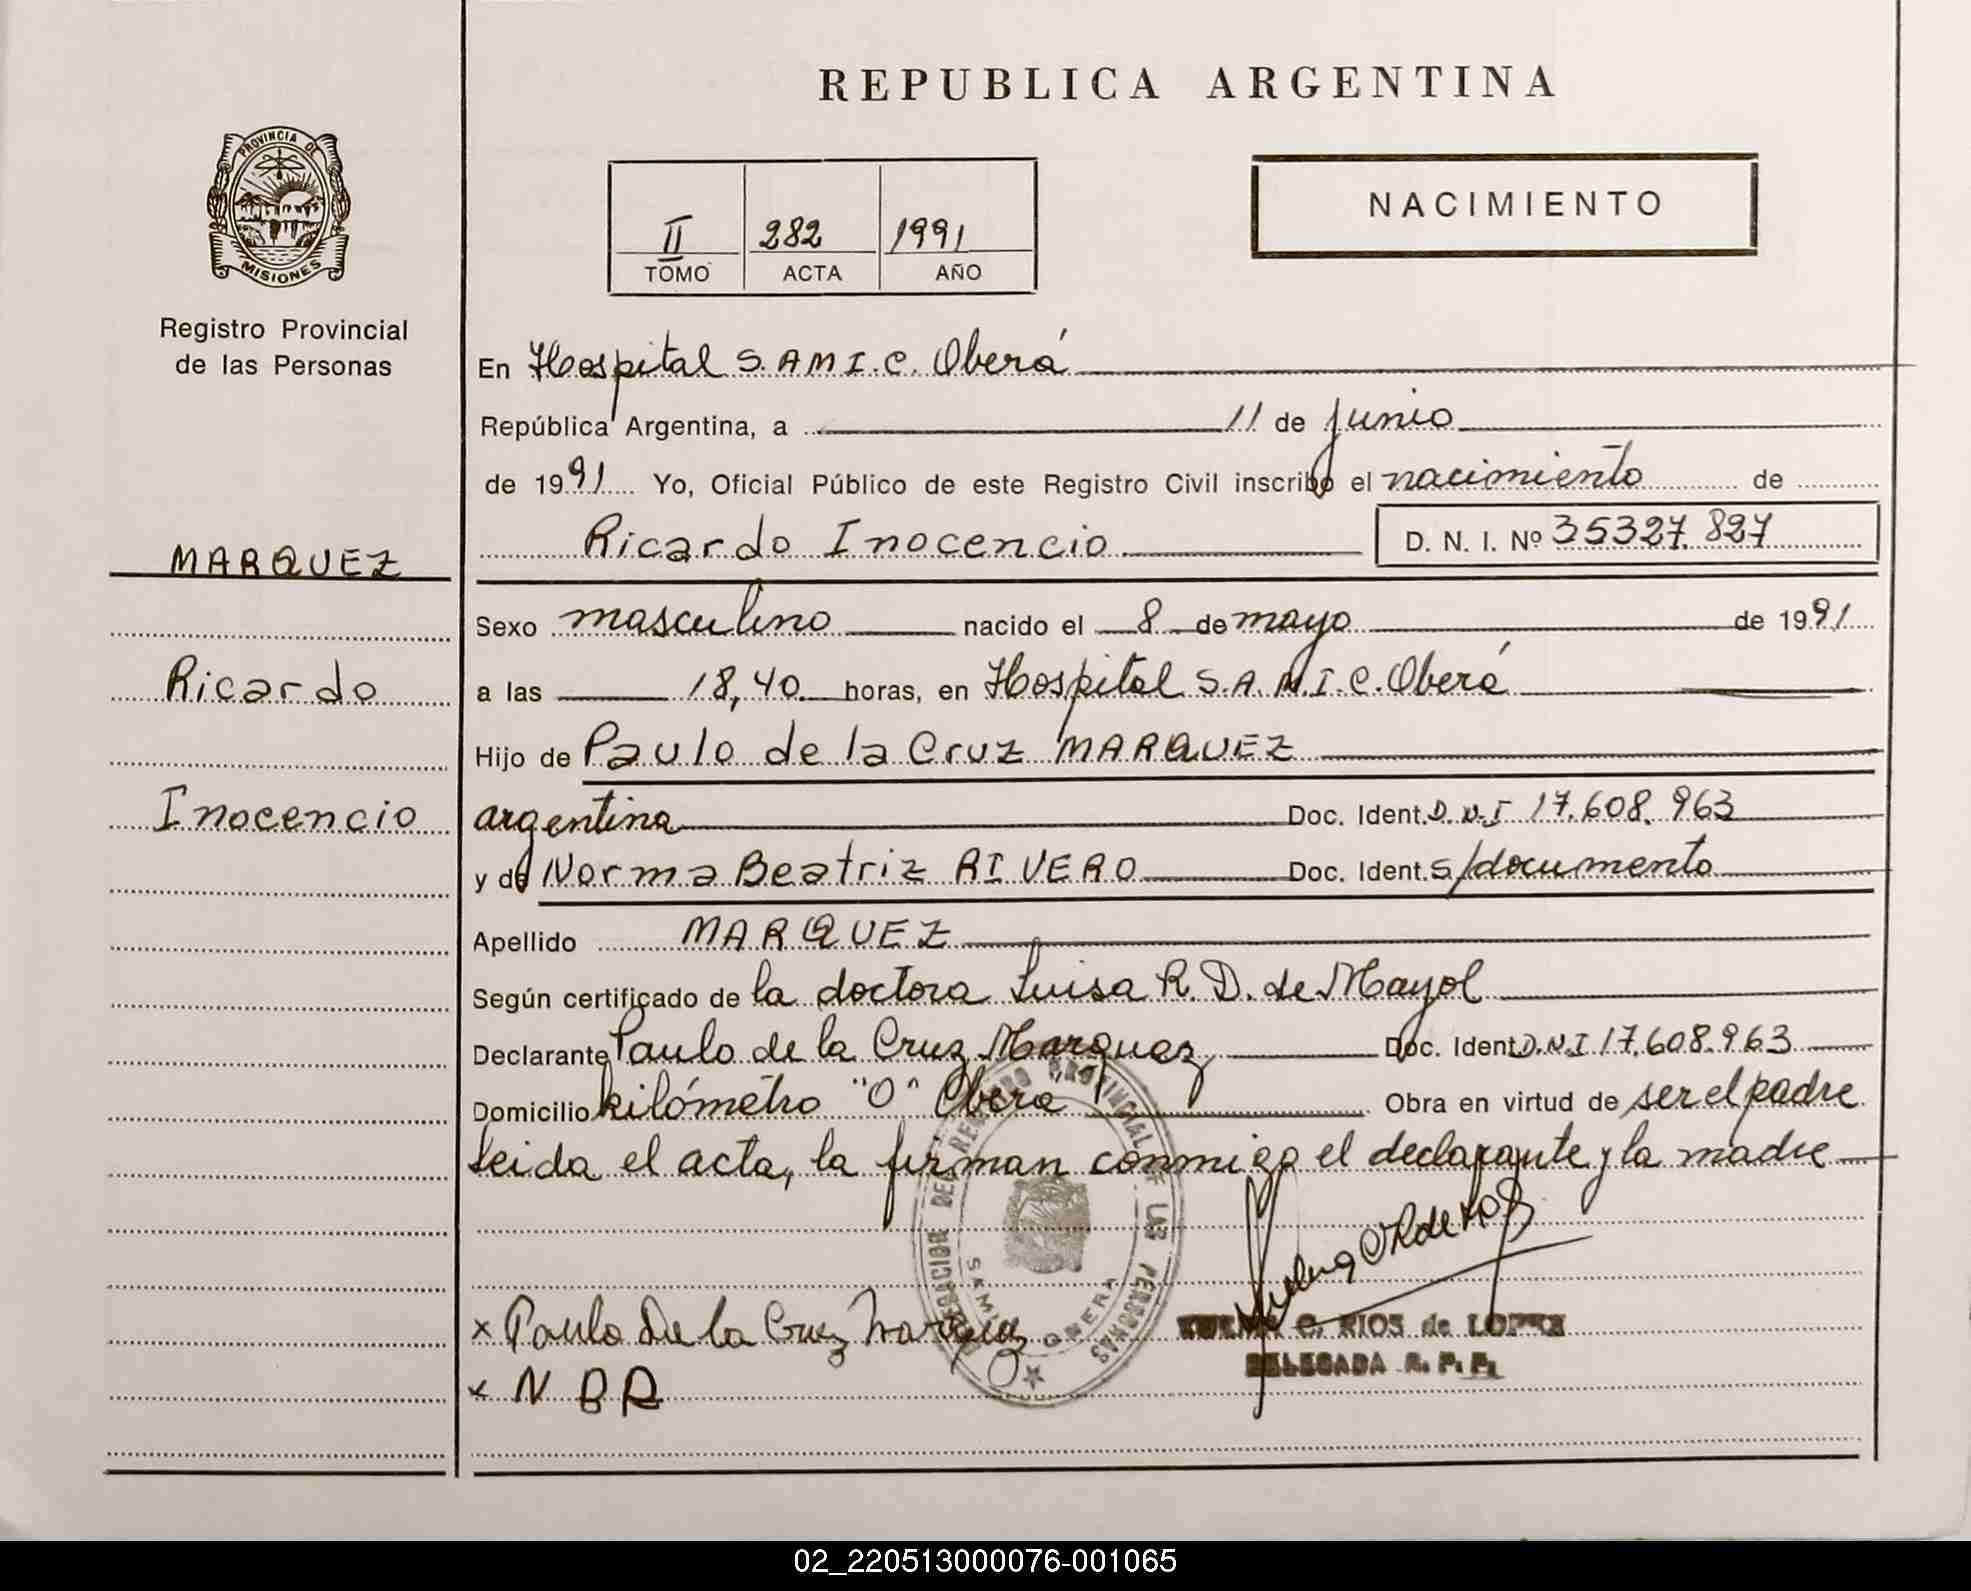 REPUBLICA ARGENTINA
PROVINCIA DE
MISIONES
Registro Provincial
de las Personas
II 282 1991
TOMO ACTA AÑO
NACIMIENTO
MARQUEZ
Ricardo
Inocencio
En Hospital S.AMI.C. Oberá
República Argentina, a 11 de junio
de 1991 Yo, Oficial Público de este Registro Civil inscribo el nacimiento de
Ricardo Inocencio D. N. I. Nº 35327.827
Sexo masculino nacido el 8 de mayo de 1991
a las 18,40 horas, en Hospital S.A.M.I.C. Oberá
Hijo de Paulo de la Cruz MARQUEZ
argentina Doc. Ident. D.N.I 17.608.963
y de Norma Beatriz RIVERO Doc. Ident. s/documento
Apellido MARQUEZ
Según certificado de la doctora Luisa R. D. de Mayol
Declarante Paulo de la Cruz Marquez Doc. Ident. D.N.I 17.608.963
Domicilio kilómetro "0" Oberá Obra en virtud de ser el padre
Leida el acta, la firman conmigo el declarante y la madre
DELEGACION DEL REGISTRO PROVINCIAL DE LAS PERSONAS
x Paulo De la Cruz Marquez
C. RIOS de LOPEZ
DELEGADA R. P. P.
x N B R
02_220513000076-001065